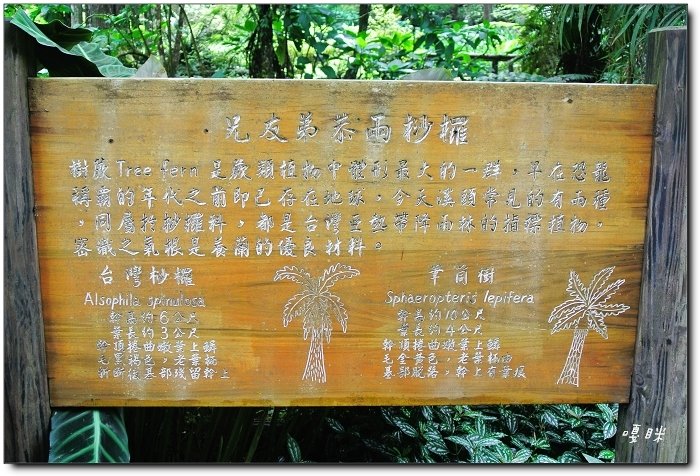 兄友弟恭兩桫欏
樹蕨Tree fern 是蕨類植物中體形最大的一群,早在恐龍
稱霸的年代之前即已存在地球,今天溪頭常見的有兩種
,同屬於桫欏科,都是台灣亞熱帶降雨林的指標植物,
密織之氣根是養蘭的優良材料。
台灣桫欏
Alsophila spinulosa
幹高約6公尺
葉長約3公尺
幹頂捲曲嫩葉上鱗
毛黑褐色,老葉柄
折斷後基部殘留幹上
筆筒樹
Sphaeropteris lepifera
幹高約10公尺
葉長約4公尺
幹頂捲曲嫩葉上鱗
毛金黃色,老葉柄由
基部脫落,幹上有葉痕
嘎眯